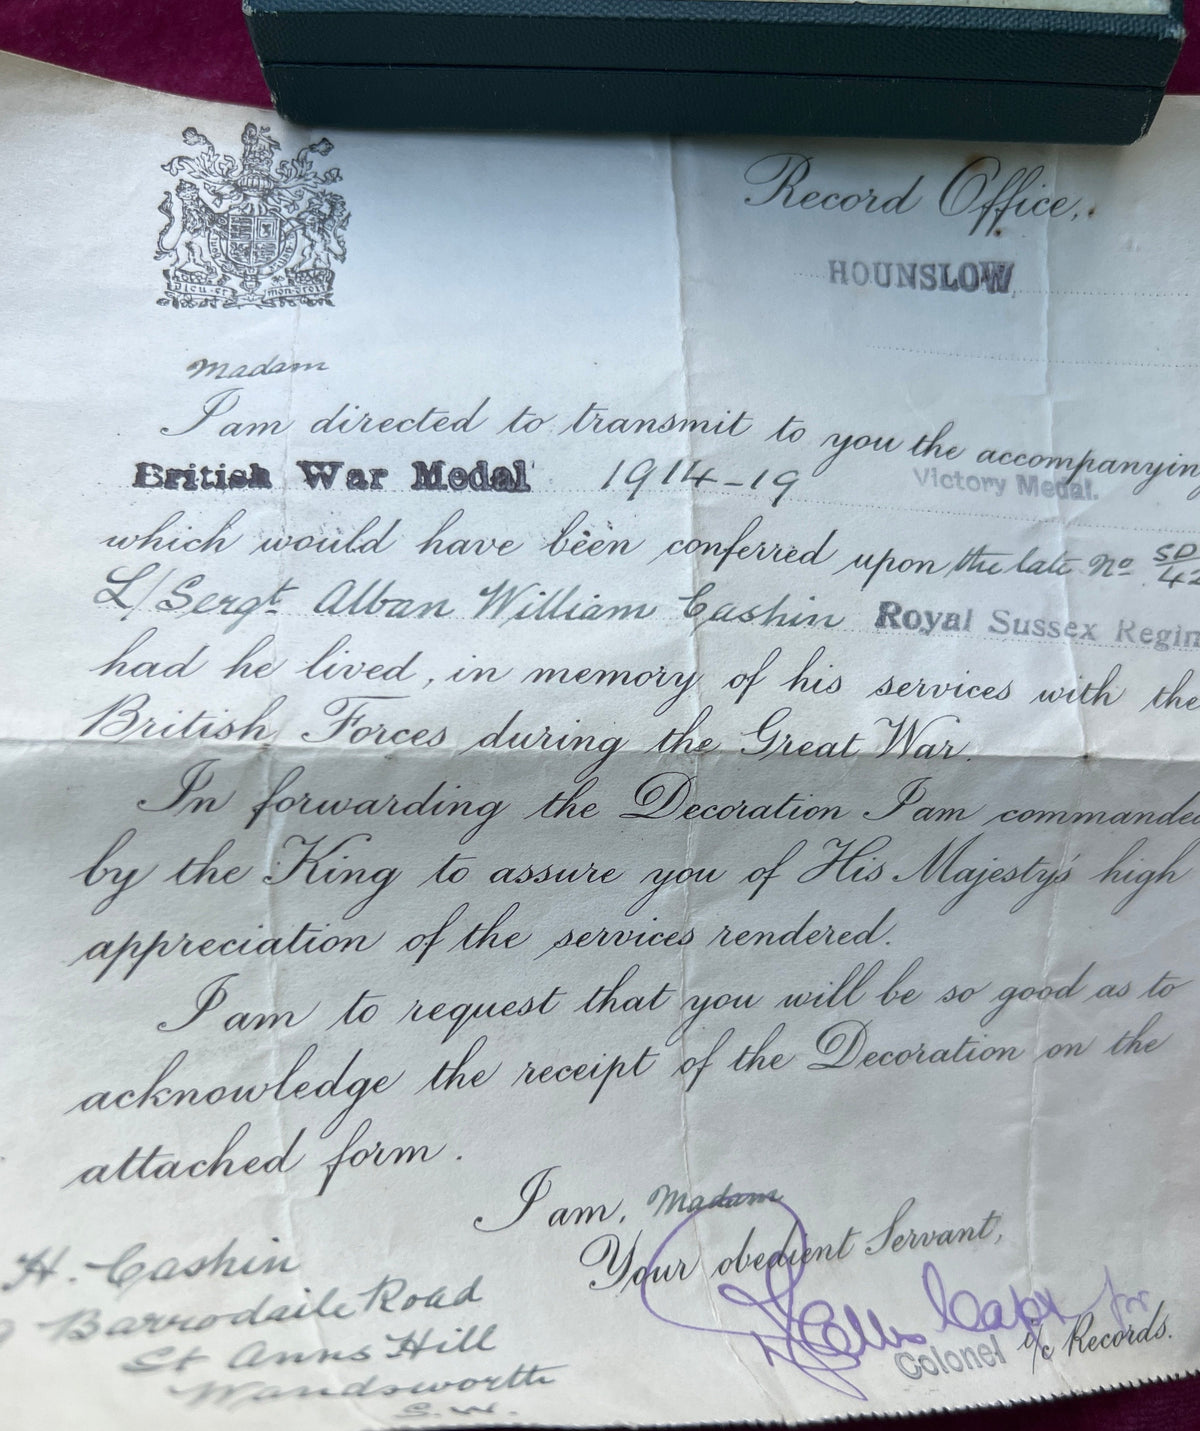 DIEU ET MON DROIT
Record Office,
HOUNSLOW
Madam
I am directed to transmit to you the accompanyin
British War Medal 1914-19 Victory Medal.
which would have been conferred upon the late No SD/42
L/Sergt Alban William Cashin Royal Sussex Regim
had he lived, in memory of his services with the
British Forces during the Great War.
In forwarding the Decoration I am commanded
by the King to assure you of His Majesty's high
appreciation of the services rendered.
I am to request that you will be so good as to
acknowledge the receipt of the Decoration on the
attached form.
I am, Madam
Your obedient Servant,
Capt for
Colonel i/c Records.
H. Cashin
Barrodaile Road
St Anns Hill
Wandsworth
S.W.